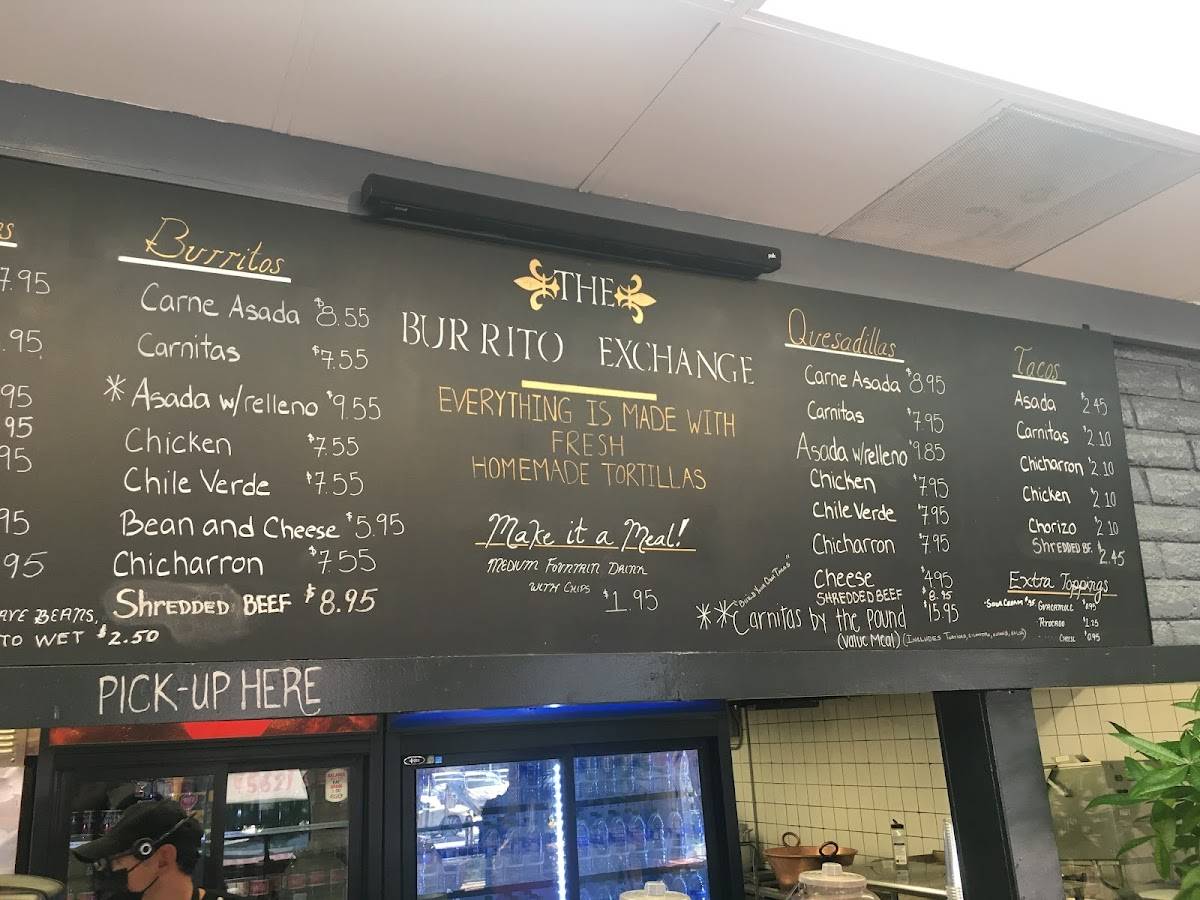 7.95
.95
95
95
95
95
95
BEANS,
TO WET $2.50
Burritos
Carne Asada $8.55
Carnitas $7.55
*Asada w/relleno $9.55
Chicken $7.55
Chile Verde $7.55
Bean and Cheese $5.95
Chicharron $7.55
SHREDDED BEEF $8.95
THE
BURRITO EXCHANGE
EVERYTHING IS MADE WITH
FRESH
HOMEMADE TORTILLAS
Make it a Meal!
MEDIUM FOUNTAIN DRINK
WITH CHIPS $1.95
Quesadillas
Carne Asada $8.95
Carnitas $7.95
Asada w/relleno $9.85
Chicken $7.95
Chile Verde $7.95
Chicharron $7.95
Cheese $4.95
SHREDDED BEEF $8.95
"Build Your Own Tacos"
**Carnitas by the pound $15.95
(Value Meal)
Tacos
Asada $2.45
Carnitas $2.10
Chicharron $2.10
Chicken $2.10
Chorizo $2.10
SHREDDED BF. $2.45
Extra Toppings
SOUR CREAM GUACAMOLE
AVOCADO $1.25
CHEESE $0.95
PICK-UP HERE